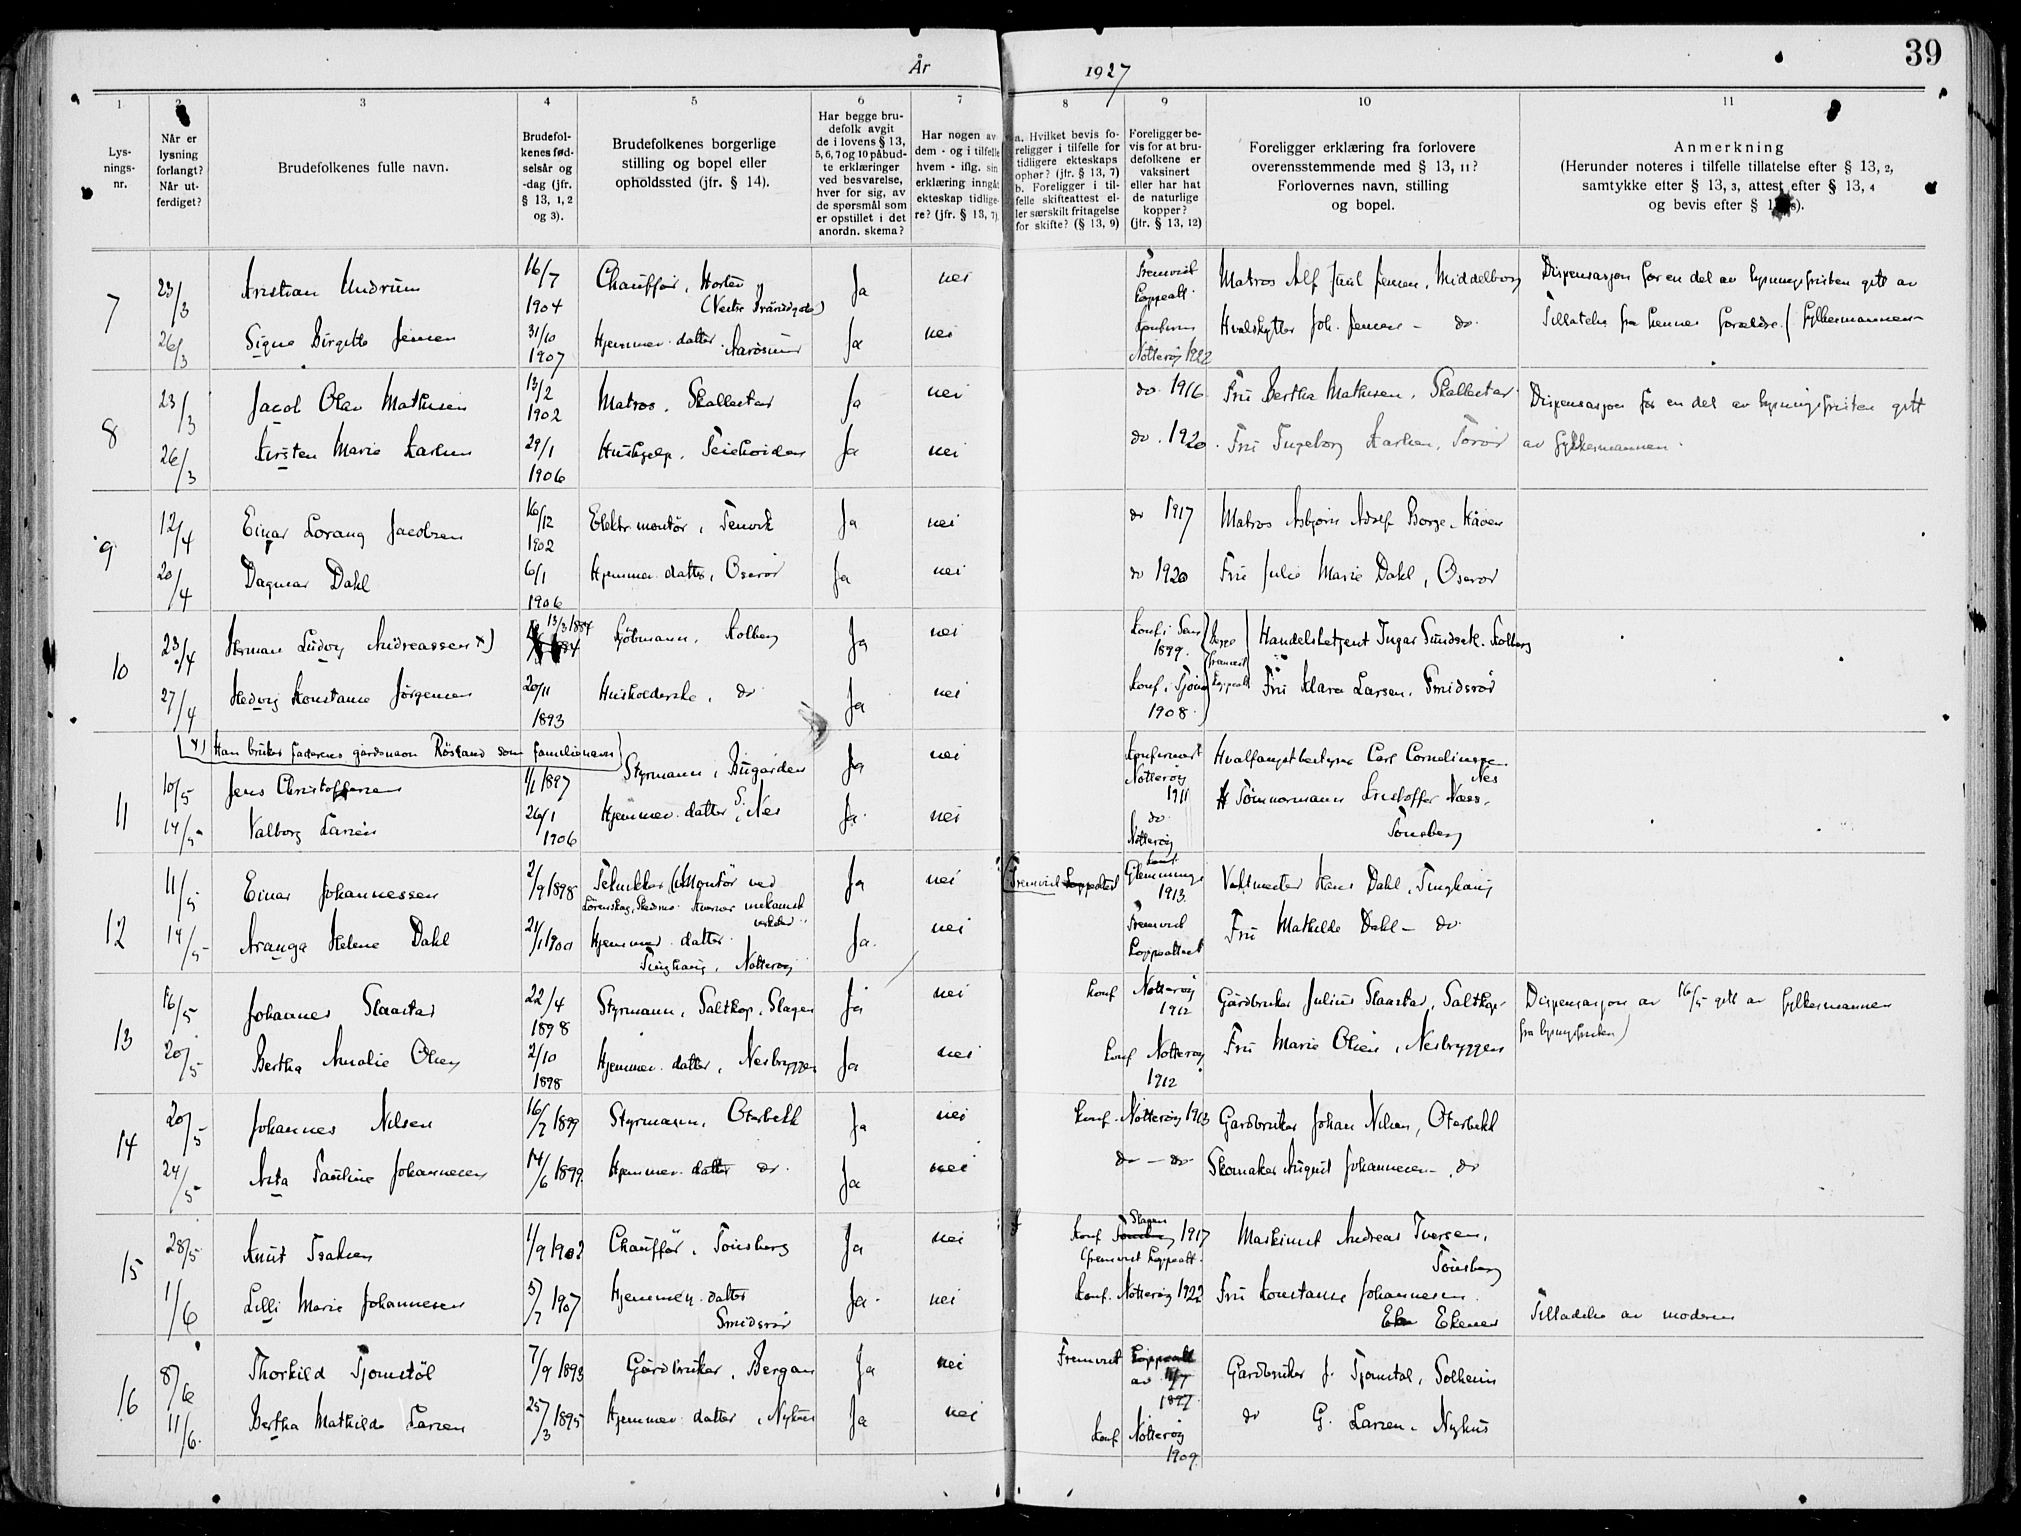 År 1927
39
1 2 3 4 5 6 7 8 9 10 11
Lys-
nings-
nr.
Når er
lysning
forlangt?
Når ut-
ferdiget?
Brudefolkenes fulle navn.
Brudefol-
kenes fød-
selsår og
-dag (jfr.
§ 13, 1, 2
og 3).
Brudefolkenes borgerlige
stilling og bopel eller
opholdssted (jfr. § 14).
Har begge bru-
defolk avgit
de i lovens § 13,
5, 6, 7 og 10 påbud-
te erklæringer
ved besvarelse,
hver for sig, av
de spørsmål som
er opstillet i det
anordn. skema?
Har nogen av
dem - og i tilfelle
hvem - iflg. sin
erklæring inngåt
ekteskap tidlige-
re? (jfr. § 13, 7)
a. Hvilket bevis fo-
religger i tilfelle for
tidligere ekteskaps
ophør? (jfr. § 13, 7)
b. Foreligger i til-
felle skifteattest el-
ler særskilt fritagelse
for skifte? (§ 13, 9)
Foreligger be-
vis for at bru-
defolkene er
vaksinert
eller har hat
de naturlige
kopper?
(jfr. § 13, 12)
Foreligger erklæring fra forlovere
overensstemmende med § 13, 11?
Forlovernes navn, stilling
og bopel.
Anmerkning
(Herunder noteres i tilfelle tillatelse efter § 13, 2,
samtykke efter § 13, 3, attest efter § 13, 4
og bevis efter §
7 23/3 Kristian Undrum 16/7 1904 Chauffør, Horten Ja nei Fremvist koppeatt. Matros Alf Juul Jensen, Middelborg Dispensasjon for en del av lysningsfristen gitt av
26/3 Signe Birgitte Jensen 31/10 1907 Hjemmev. datter Aarøsund Ja nei Konfirm Nøtterøy 1922 Hvalskytter Joh. Jensen - do. Tillatelse fra hennes forældre. (fylkesmannen
8 23/3 Jacob Olav Mathisen 13/2 1902 Matros, Skallestad Ja nei do. 1916 Fru Bertha Mathisen, Skallestad Dispensasjon for en del av lysningsfristen gitt
26/3 Kirsten Marie Karlsen 29/1 1906 Hushjelp, Ja nei do. 1920. Fru Ingeborg Karlsen, Torød av fylkesmannen.
9 12/4 Einar Lorang Jacobsen 16/12 1902 Elektr. montør, Tenvik Ja nei do 1917 Matros Asbjørn Adolf Borge, Kåven
20/4 Dagmar Dahl 6/1 1906 Hjemmev. datter, Oserød Ja nei do 1920 Fru Julie Marie Dahl, Oserød
10 23/4 Herman Ludvig Andreassen x) 13/3 1884 Sjømann, Kolberg Ja nei Konf. i Sem 1899. Handelsbetjent Ingar Sundsek. Kolberg
27/4 Hedvig Konstanse Jørgensen 20/11 1893 Husholderske, do Ja nei Konf. i Tjøme 1908. fremvist koppeatt Fru Klara Larsen, Smidsrød
x) Han bruker faderens gårdsnavn Røsland som familienavn
11 10/5 Jens Christoffersen 1/1 1897 Styrmann, Bugården Ja nei Konfirmert Nøtterøy 1911 Hvalfangstbestyrer Carl Corneliussen. Nes
14/5 Valborg Larsen 26/1 1906 Hjemmev. datter, S. Nes Ja. nei do. Nøtterøy Tømmermann Kristoffer Næss, Tønsberg
12 11/5 Einar Johannessen 2/9 1898 Tekniker (Montør ved Lørenskog, Skedsmo. Kværner mekanisk verksted Ja nei Fremvist koppeattest Konf. Glemminge 1913. Vaktmester Hans Dahl, Tinghaug
14/5 Aranga Helene Dahl 21/1 1900 Hjemmev. datter. Tinghaug, Nøtterøy Ja. nei Fremvist koppeattest Fru Mathilde Dahl - do.
13 16/5 Johannes Slaastad 22/4 1898 Styrmann, Saltkop, Slagen Ja nei Konf Nøtterøy 1912 Gårdbruker Julius Slaastad, Saltkop Dispensasjon av 16/5 gitt av fylkesmannen
20/5 Bertha Amalie Olsen 2/10 1898 Hjemmev. datter, Nesbryggen Ja nei Konf Nøtterøy 1912 Fru Marie Olsen, Nesbryggen fra lysningsfristen)
14 20/5 Johannes Nilsen 16/7 1899 Styrmann, Oterbekk Ja nei Konf. Nøtterøy 1913 Gårdbruker Johan Nilsen, Oterbekk
24/5 Asta Pauline Johannesen 14/6 1899. Hjemmev. datter do. Ja nei do - do Skomaker August Johannesen - do
15 28/5 Knut Isaksen 1/9 1902 Chauffør, Tønsberg Ja nei Konf Slagen Tønsberg 1917 fremvist koppeatt. Maskinist Andreas Iversen, Tønsberg
1/6 Lilli Marie Johannesen 5/7 1907 Hjemmev. datter Smidsrød Ja. nei Konf. Nøtterøy 1922 Fru Konstanse Johannesen. Ekenes Tilladelse av moderen
16 8/6 Thorkild Tjomstøl 7/9 1893 Gårdbruker, Bergan Ja nei Fremvist koppeatt av 11/7 1897. Gårdbruker J. Tjomstøl, Solheim
11/6. Bertha Mathilde Larsen 25/3 1895 Hjemmev. datter, Nyhus Ja nei Konf Nøtterøy 1909. do G. Larsen, Nyhus